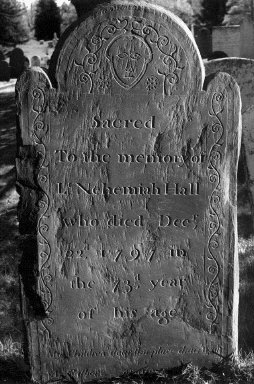 Sacred
To the memory of
Lt Nehemiah Hall
who died Decr
22d 1797 in
the 73d year
of his age